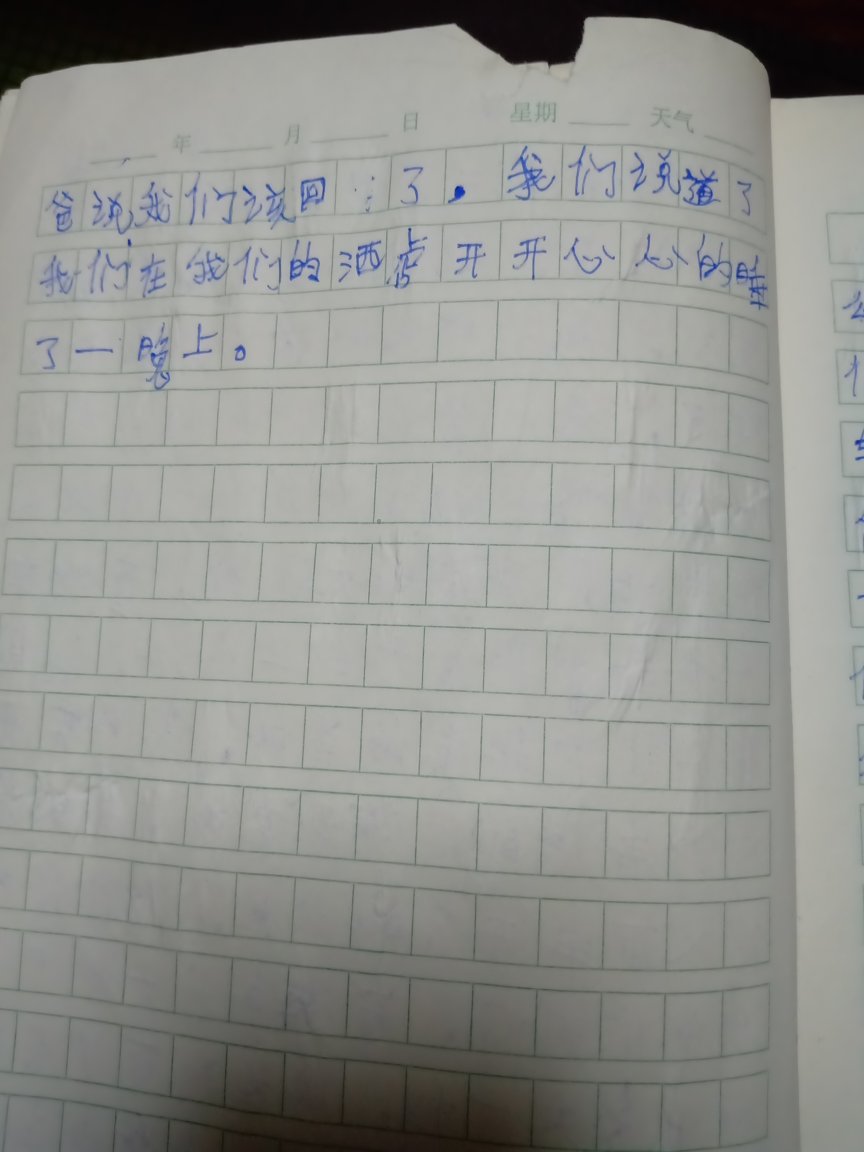 年 月 日 星期 天气
爸说我们该回：了，我们说道了
我们在我们的酒店开开心心的睡
了一晚上。